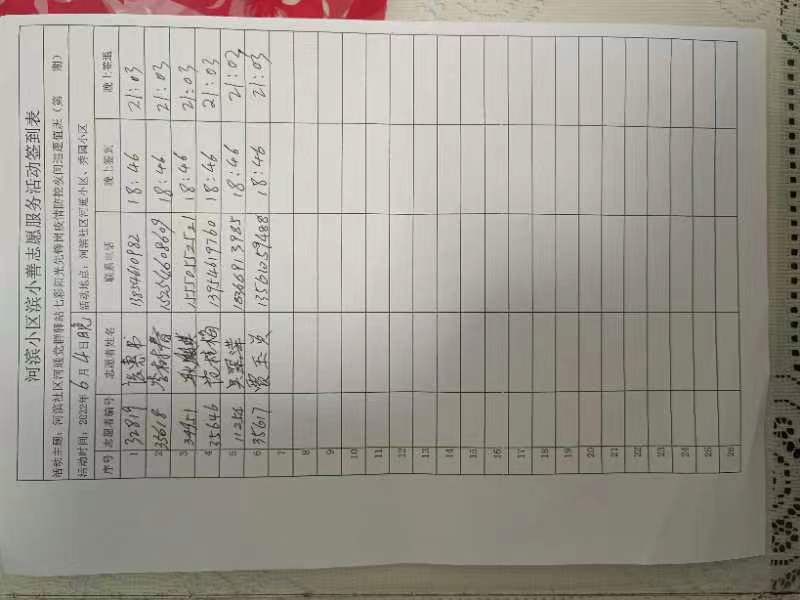 河滨小区滨小善志愿服务活动签到表
活动主题：河滨社区河延党群驿站七彩阳光先锋岗疫情防控夜间巡逻值班（第 期）
活动时间：2022年6月4日晚 活动地点：河滨社区河延小区、秀园小区
序号 志愿者编号 志愿者姓名 联系电话 晚上签到 晚上签退
1 32819 13854610982 18:46 21:03
2 35618 15254608609 18:46 21:03
3 34951 15550552521 18:46 21:03
4 35646 范桂梅 13954619760 18:46 21:03
5 18366813985 18:46 21:03
6 35617 贾玉兴 13561059488 18:46 21:03
7
8
9
10
11
12
13
14
15
16
17
18
19
20
21
22
23
24
25
26